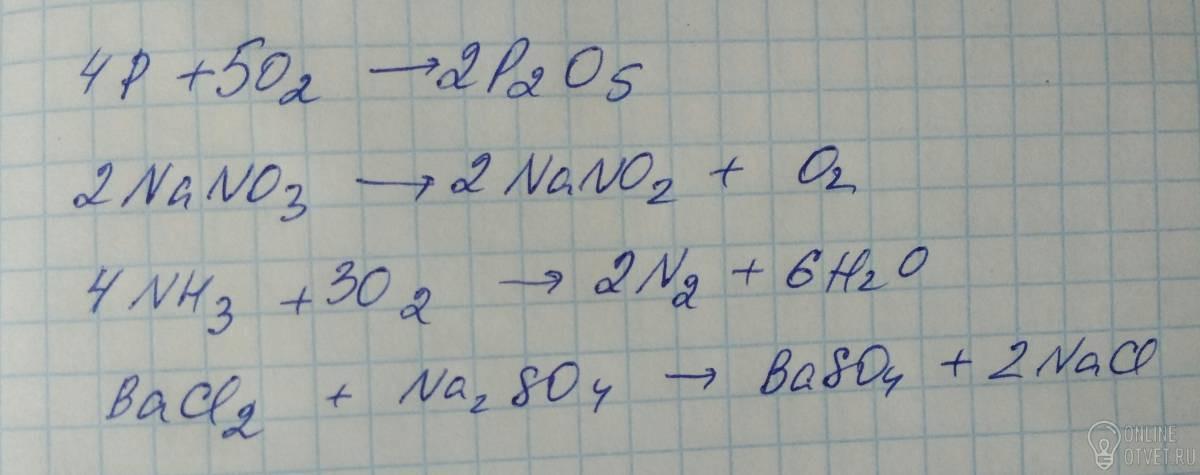 4P + 5O₂ → 2P₂O₅
2NaNO₃ → 2NaNO₂ + O₂
4NH₃ + 3O₂ → 2N₂ + 6H₂O
BaCl₂ + Na₂SO₄ → BaSO₄ + 2NaCl
ONLINE
OTVET.RU